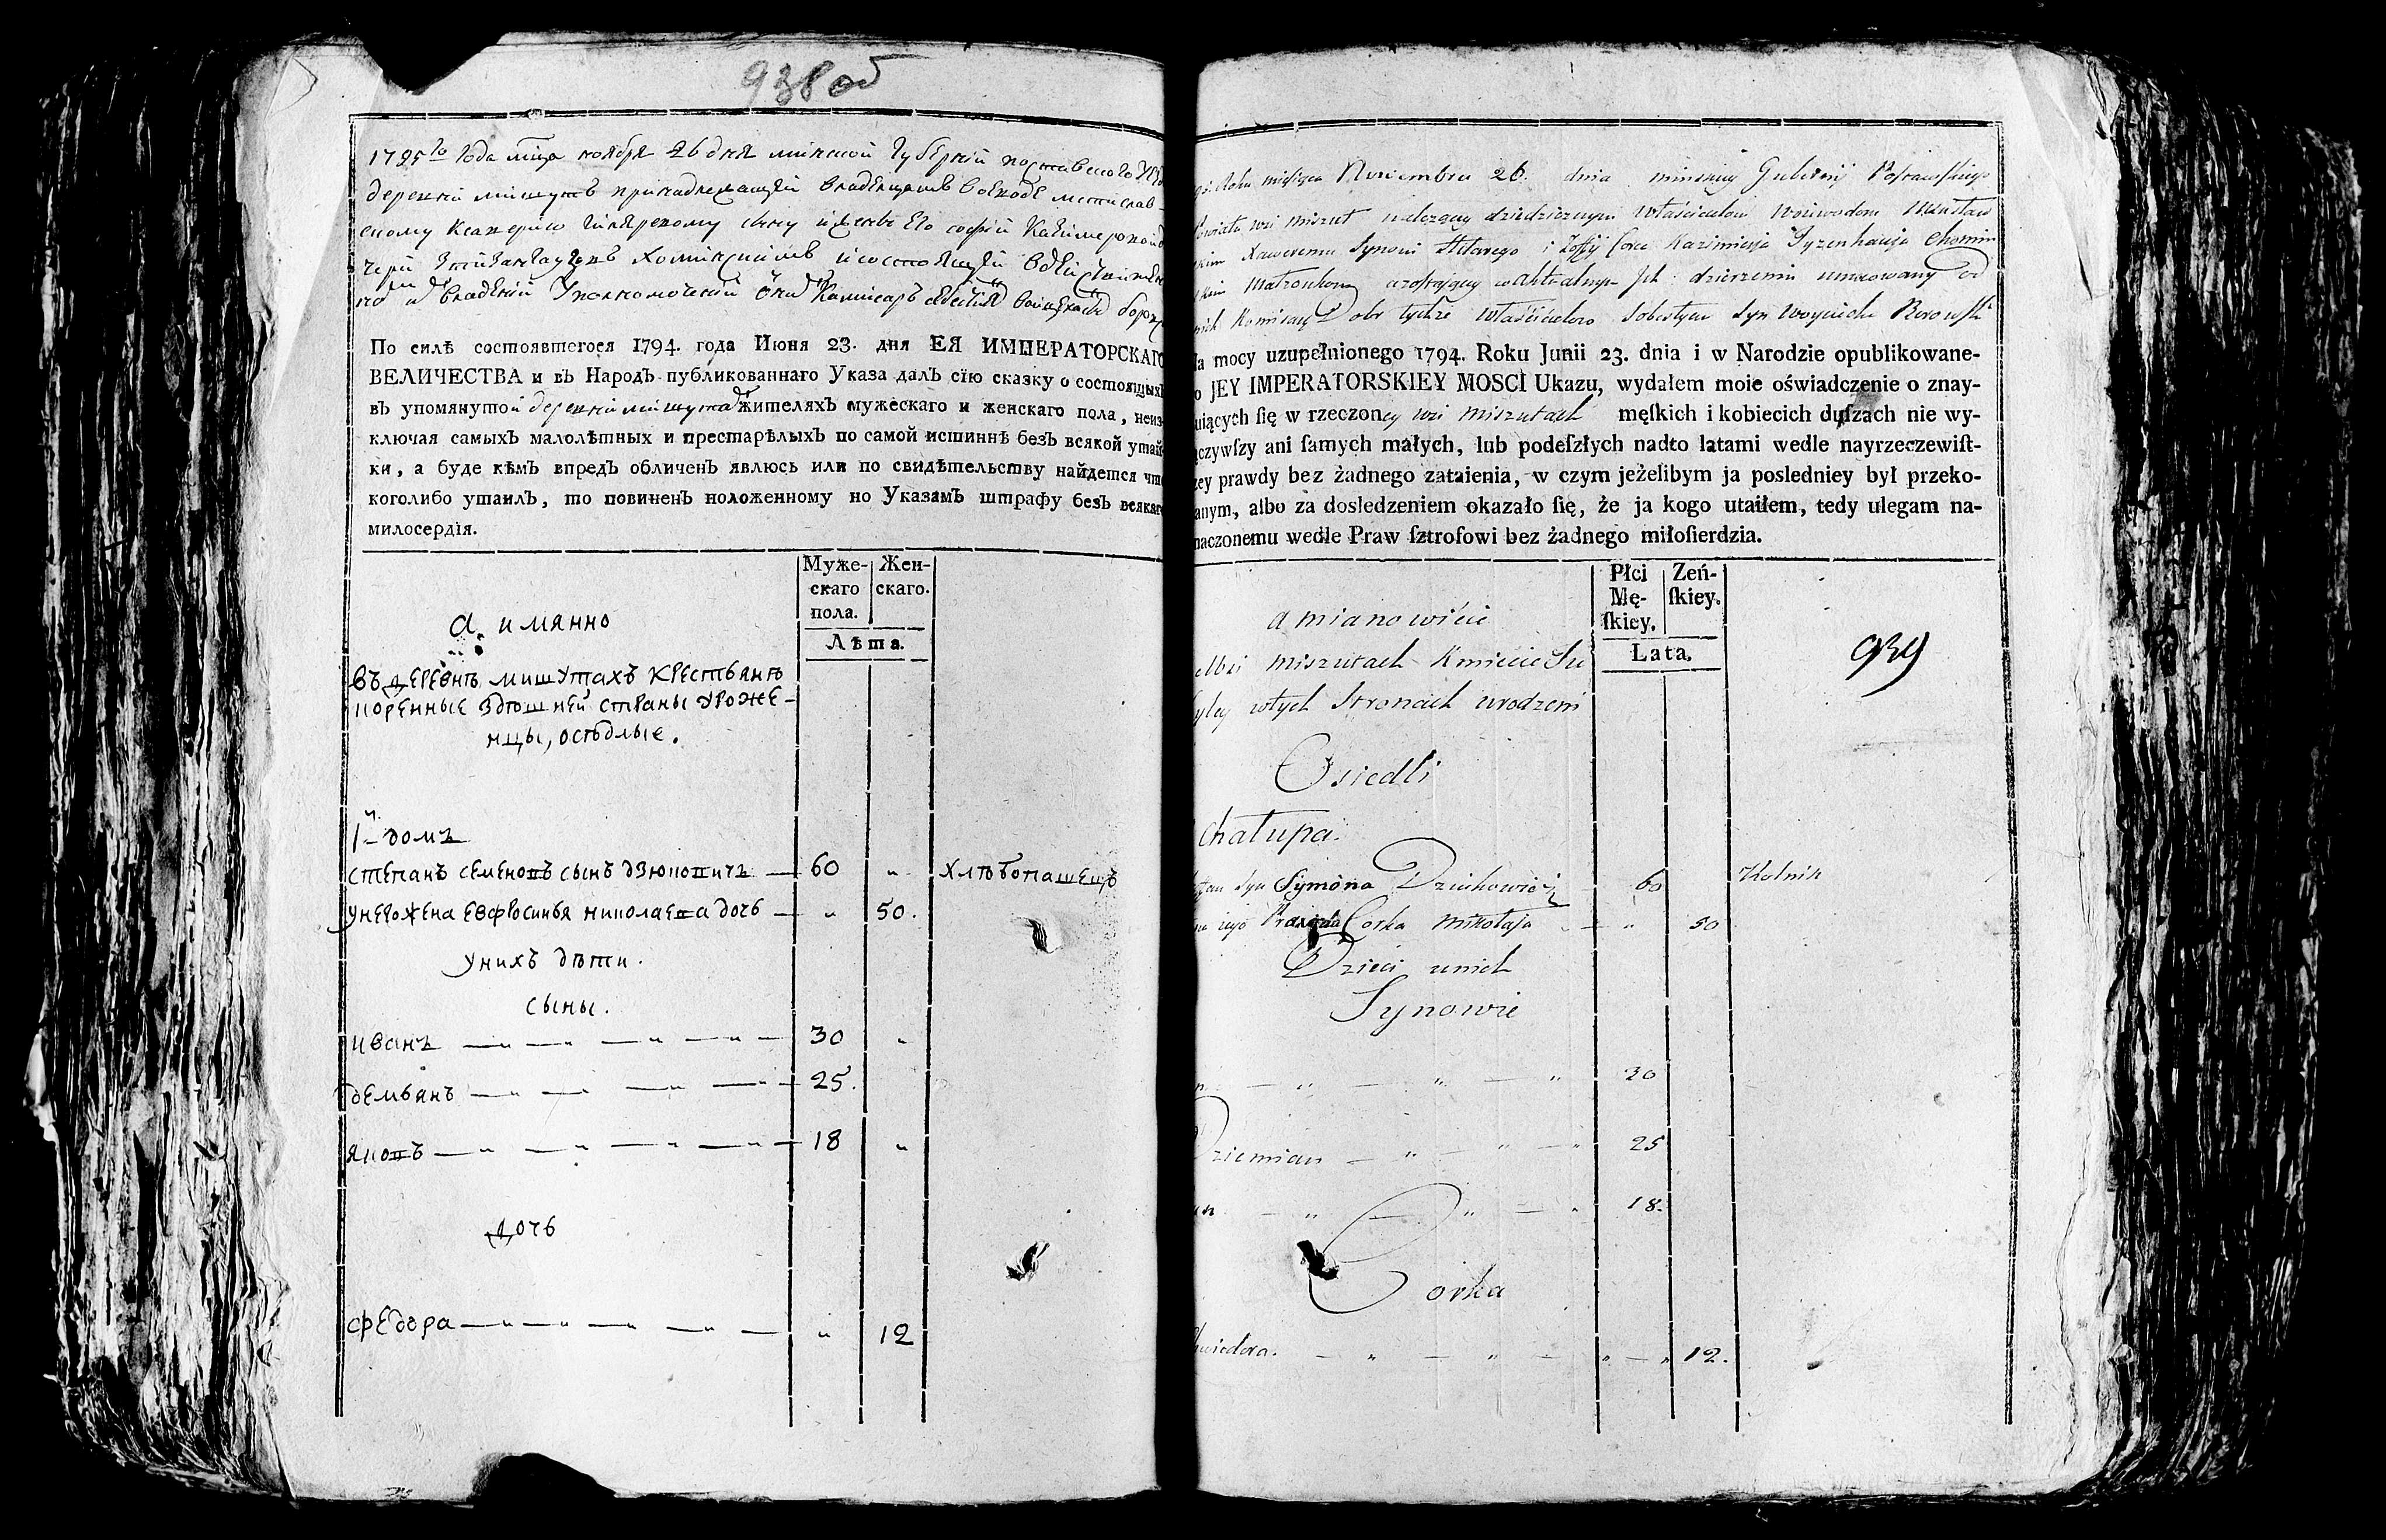 938 об
1795 го года мца ноября 26 дня минской губернии поставского
деревни мишутъ принадлежащей владенцамъ воеводе мстислав-
скому ксаверию сыну и жене его софии казимеровой
хоминскимъ и состоящей в
владении комисаръ
По силѣ состоявшегося 1794. года Июня 23. дня ЕЯ ИМПЕРАТОРСКАГО
ВЕЛИЧЕСТВА и въ Народъ публикованнаго Указа далъ сію сказку о состоящихъ
въ упомянутой деревни мишутахъ жителяхъ мужескаго и женскаго пола, неиз-
ключая самыхъ малолѣтныхъ и престарѣлыхъ по самой истиннѣ безъ всякой утай-
ки, а буде кѣмъ впредъ обличенъ явлюсь или по свидѣтельству найдется что
коголибо утаилъ, то повиненъ положенному по Указамъ штрафу безъ всякаго
милосердія.
Муже-скаго пола. Жен-скаго.
Лѣта.
а имянно
въ деревнѣ мишутахъ крестьянѣ
коренные здѣшней страны уроже-
нцы, осѣдлые.
1й домъ
степанъ семеновъ сынъ дзюковичъ — 60 " хлѣбопашецъ
унего жена евфросинья николаева дочь — " 50.
унихъ дѣти.
сыны.
иванъ — " — " — " — " — 30 "
демьянъ — " — " — " — " — 25.
яковъ — " — " — " — " — 18 "
дочь
федора — " — " — " — " — " 12
Roku miesiąca Nowembra 26. dnia minskiey Gubernij Postawskiego
Powiatu wsi Miszut należącey dziedzicznym Właścicielom Woiewodom Mscisław
skim Xaweremu Synowi Hilarego i Zofij Corce Kazimierza Tyzenhauza Chomin
skim Małżonkom w aktualnym Ich dzierżeniu umocowany od
nich Komisarz Dobr tychże Właścicielow Sebestyan Syn Woyciecha Borowski
Na mocy uzupełnionego 1794. Roku Junii 23. dnia i w Narodzie opublikowane-
o JEY IMPERATORSKIEY MOSCI Ukazu, wydałem moie oświadczenie o znay-
uiących ſię w rzeczoney wsi Miszutach męſkich i kobiecich duſzach nie wy-
ączywſzy ani ſamych małych, lub podeſzłych nadto latami wedle nayrzeczewiſt-
zey prawdy bez żadnego zataienia, w czym jeżelibym ja posledniey był przeko-
anym, albo za dosledzeniem okazało ſię, że ja kogo utaiłem, tedy ulegam na-
naczonemu wedle Praw ſztrofowi bez żadnego miłoſierdzia.
Płci Mę-ſkiey. Zeń-ſkiey.
Lata.
939
a mianowicie
Miszutach Kmiecie
wtych Stronach urodzeni
Osiedli
Chałupa.
Syn Symona Dziukowicz — 60 Rolnik
iego Corka Mikołaja — " 50
Dzieci unich
Synowie
— " — " — " 30
Dziemian — " — " — " 25
— " — " — " 18.
Corka
Chwiedora. — " — " — " — " 12.